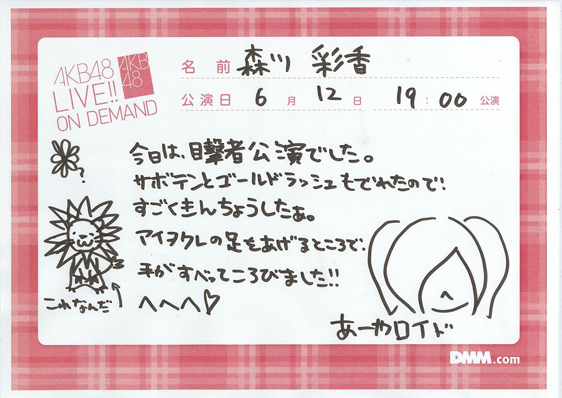 AKB48
LIVE!!
ON DEMAND
AKB
48
名 前 森川 彩香
公演日 6月 12日 19:00 公演
今日は、目撃者公演でした。
サボテンとゴールドラッシュもでれたので!
すごくきんちょうしたぁ。
アイヲクレの足をあげるところで!
手がすべってころびました!!
へへへ♡
?
これなんだ
あーやロイド
DMM.com